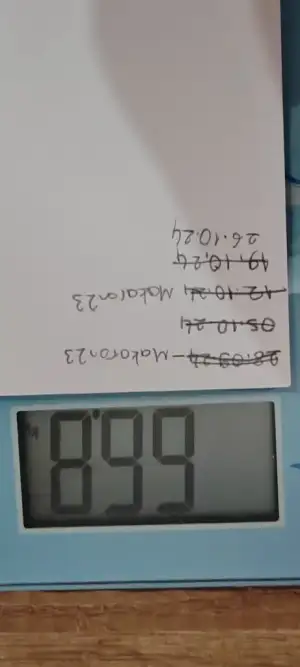 66.8 kg
28.09.24 - Makaron23
05.10.24
12.10.24 Makaron23
19.10.24
26.10.24